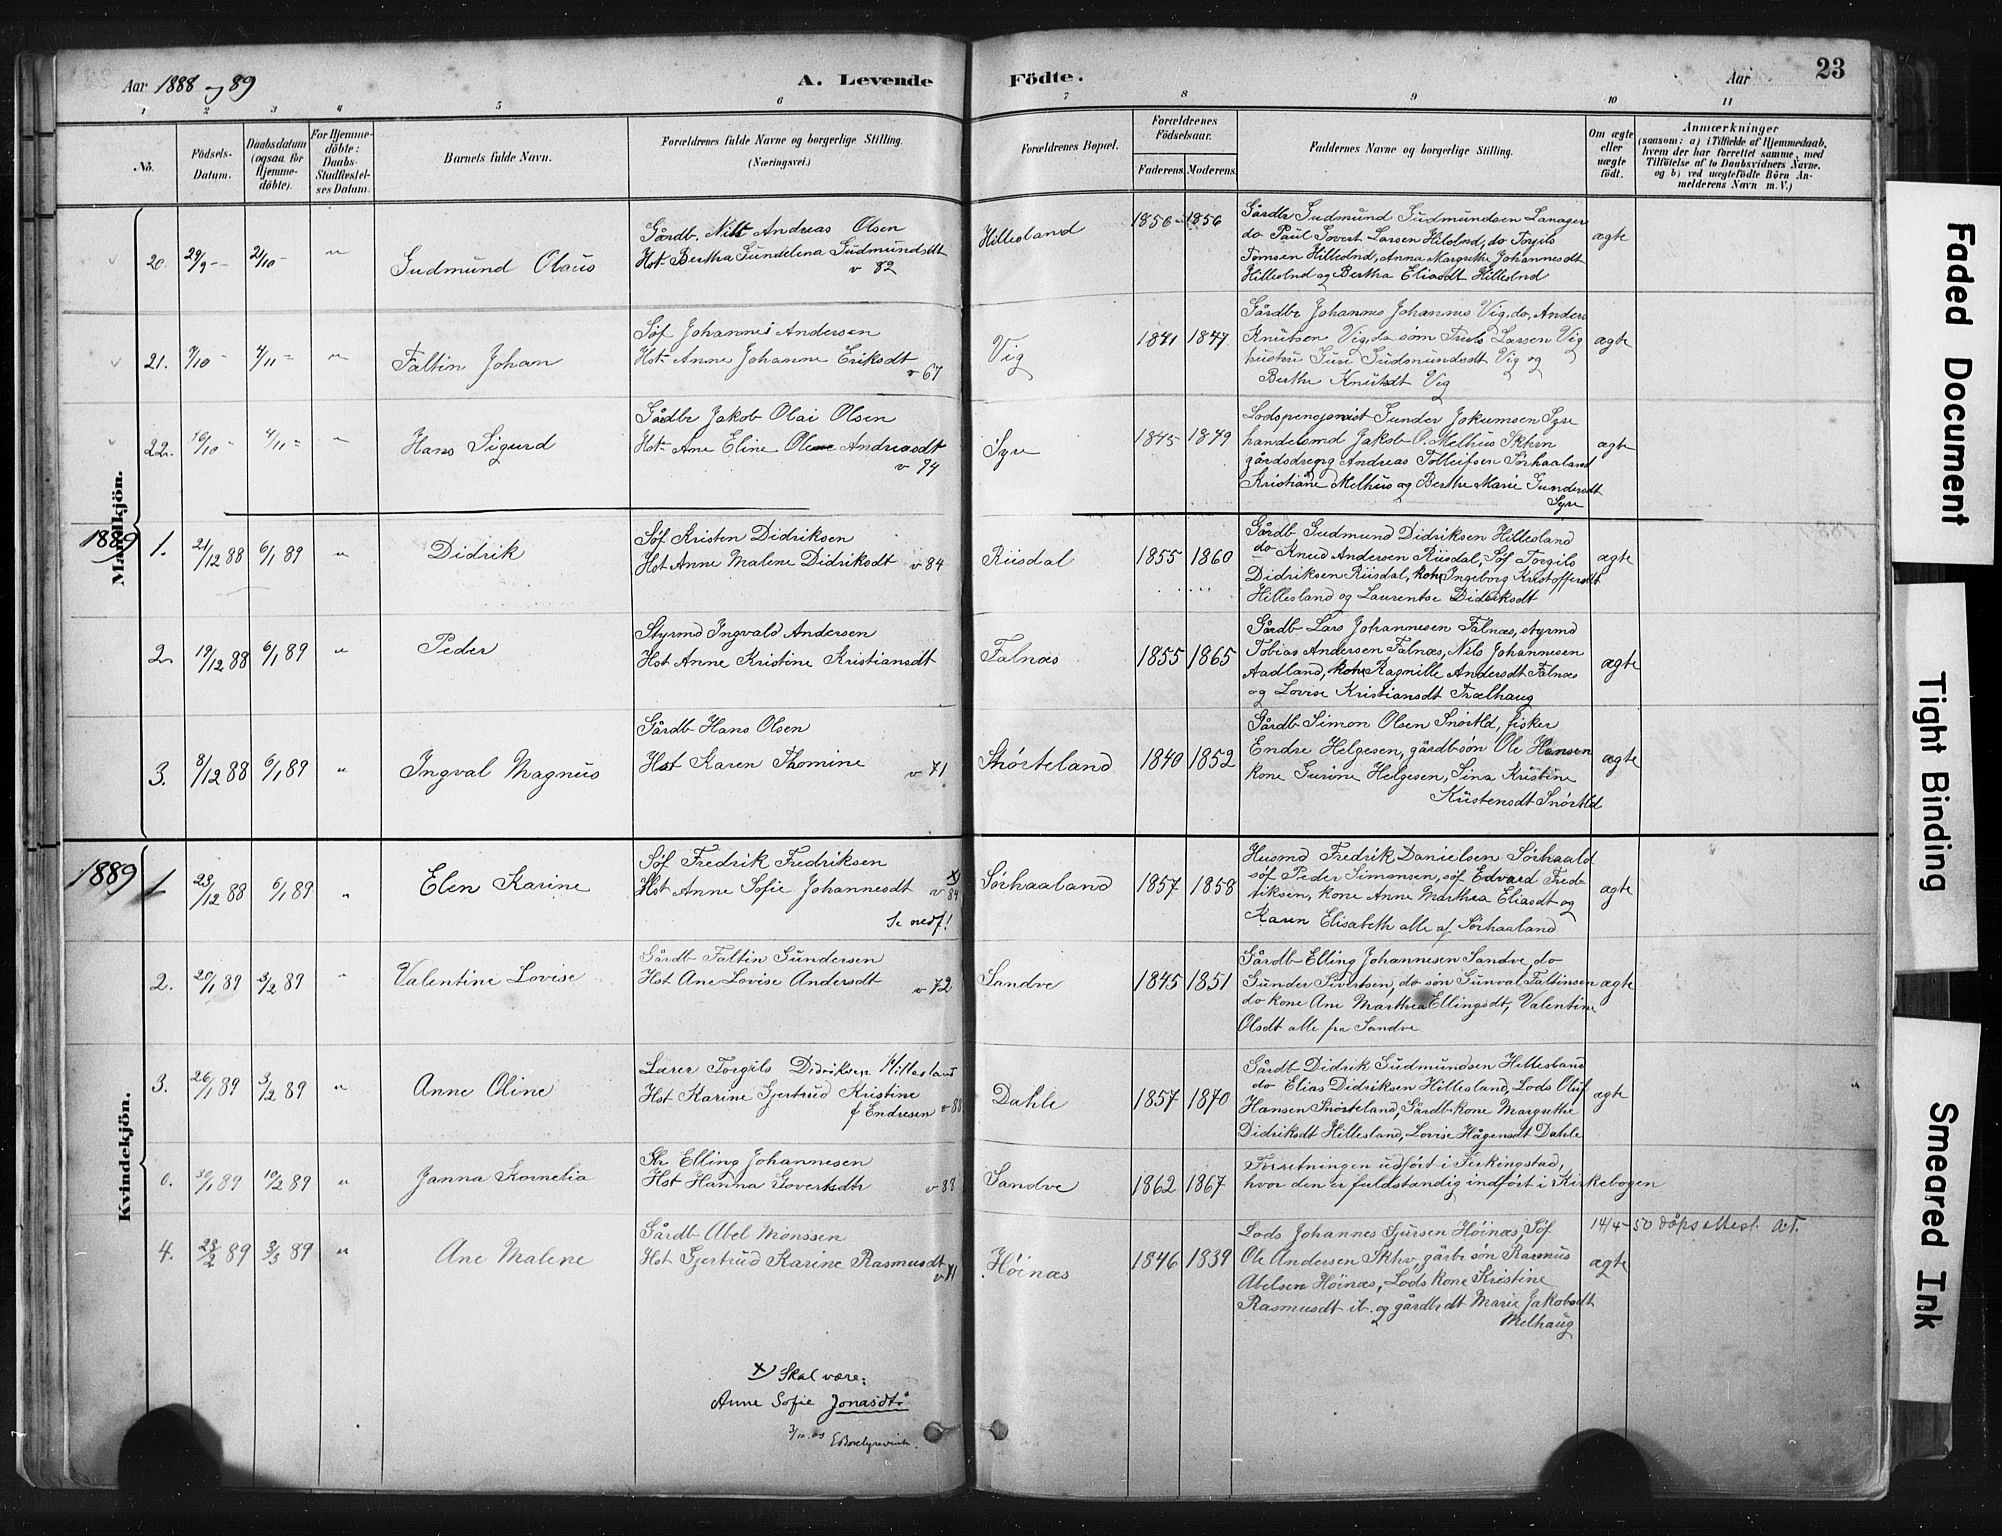 Aar 1888 og 89
A. Levende
Födte.
Aar
23
1 2 3 4 5 6 7 8 9 10 11
No.
Födsels-Datum.
Daabsdatum (ogsaa for Hjemmedöbte).
For Hjemmedöbte: Daabs-Stadfæstelses Datum.
Barnets fulde Navn.
Forældrenes fulde Navne og borgerlige Stilling. (Næringsvei.)
Forældrenes Bopæl.
Forældrenes Födselsaar.
Faderens. Moderens.
Faddernes Navne og borgerlige Stilling.
Om ægte eller uægte födt.
Anmærkninger
(saasom: a) i Tilfælde af Hjemmedaab, hvem der har forrettet samme, med Tilföielse af to Daabsvidners Navne, og b) ved uægtefödte Börn Anmelderens Navn m. V.)
Mandkjön.
20. 29/9 – 21/10 – " Gudmund Olaus
Gårdb. Nils Andreas Olsen
Hst Bertha Gundelena Gudmundsdt
v 82
Hillesland 1856 1856
Gårdbr Gudmund Gudmundsen Lanager
do Paul Govert Larsen Hilslnd, do Torgils
Tomsen Hilleslnd, Anna Margrethe Johannesdt
Hilleslnd og Bertha Eliasdt Hilleslnd
ægte
21. 7/10 – 4/11 – " Faltin Johan
Søf Johannes Andersen
Hst Anne Johanne Eriksdt
v 67
Vig 1841 1847
Gårdbr Johannes Johannes Vig, do, Anders
Knutsen Vig, do søn Truls Larsen Vig
hustru Guri Gudmundsdt Vig og
Berthe Knutsdt Vig
ægte
22. 10/10 – 4/11 – " Hans Sigurd
Gårdbr Jakob Olai Olsen
Hst Ane Eline Andreasdt
v 74
Syre 1845 1849
Lodspensjonist Gunder Jokumsen Syre
handelsmd Jakob O. Melhus Skhvn
gårdsdrgrg Andreas Tolleifsen Sørhaaland
Kristiane Melhus og Berthe Marie Gundersdt
Syre
ægte
1889
1. 21/12 88 6/1 89 " Didrik
Søf Kristen Didriksen
Hst Anne Malene Didriksdt v 84
Riisdal 1855 1860
Gårdb Gudmund Didriksen Hillesland
do Knud Andersen Riisdal, Søf Torgils
Didriksen Riisdal, kone Ingeborg Kristoffersdt
Hillesland og Laurentse Didriksdt
ægte
2. 19/12 88 6/1 89 " Peder
Styrmd Ingvald Andersen
Hst Anne Kristine Kristiansdt
Falnæs 1855 1865
Gårdb Lars Johannesen Falnæs, styrmd
Tobias Andersen Falnæs, Nils Johannesen
Aadland, kone Ragnille Andersdt Falnæs
og Lovise Kristiansdt Trælhaug
ægte
3. 8/12 88 6/1 89 " Ingval Magnus
Gårdb Hans Olsen
Hst Karen Thomine v 71
Snørteland 1840 1852
Gårdb Simon Olsen Snørtld, fisker
Endre Helgesen, gårdb søn Ole Hansen
kone Gurine Helgesen, Sina Kristine
Kristensdt Snørtld
ægte
1889
Kvindekjön.
1 23/12 88 6/1 89 " Elen Karine
Søf Fredrik Fredriksen
Hst Anne Sofie Johannesdt v 84 x)
Se nedf!
Sørhaaland 1857 1858
Husmd Fredrik Danielsen Sørhaald
søf Peder Simonsen, søf Edvard Fredriksen, kone Anne Marthea Eliasdt og
Karen Elisabeth alle af Sørhaaland
ægte
2. 20/1 89 3/2 89 " Valentine Lovise
Gårdb Faltin Gundersen
Hst Ane Lovise Andersdt
v 72
Sandve 1845 1851
Gårdb Elling Johannesen Sandve, do
Gunder Sivertsen, do søn Gunval Faltinsen
do kone Ane Marthea Ellingsdt, Valentine
Olsdt alle på Sandve
ægte
3. 26/1 89 3/2 89 " Anne Oline
Lærer Torgils Didriksen Hillesland
Hst Karine Gjertrud Kristine
f Endresen v 88
Dahle 1857 1870
Gårdb Didrik Gudmundsen Hillesland
do Elias Didriksen Hillesland, Lods Oluf
Hansen Snørteland, Gårdb kone Margrethe
Didriksdt Hillesland, Lovise Hågensdt Dahle
ægte
0. 30/1 89 10/2 89 " Janna Kornelia
Str Elling Johannesen
Hst Hanna Govertsdtr v 88
Sandve 1862 1867
Forretningen udført i Ferkingstad,
hvor den er fuldstændig indført i Kirkebogen
4. 23/2 89 3/3 89 " Ane Malene
Gårdb Abel Monssen
Hst Gjertrud Karine Rasmusdt
v 71
Høinæs 1846 1839
Lods Johannes Sjursen Høinæs, Søf
Ole Andersen Skhv, gårbr søn Rasmus
Abelsen Høinæs, Lods kone Kristine
Rasmusdt ib. og gårdb dt Marie Jakobsdt
Melhaug
ægte
14/4-50 dåpsattest. A.T.
x) Skal være:
Anne Sofie Jonasdtr
3/10.03
Faded Document
Tight Binding
Smeared Ink